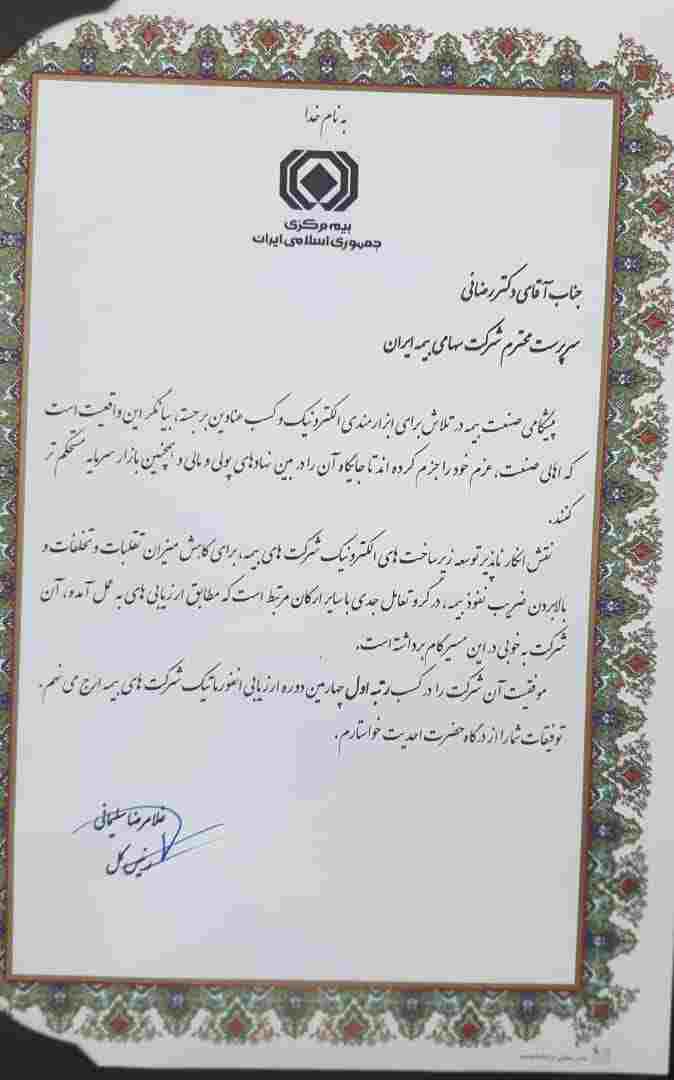 به نام خدا
بیمه مرکزی
جمهوری اسلامی ایران
جناب آقای دکتر رضائی
سرپرست محترم شرکت سهامی بیمه ایران
پیشگامی صنعت بیمه در تلاش برای ابزارمندی الکترونیک و کسب عناوین برجسته، بیانگر این واقعیت است
که اهالی صنعت، عزم خود را جزم کرده اند تا جایگاه آن را در بین نهادهای پولی و مالی و همچنین بازار سرمایه مستحکم تر
کنند.
نقش انکار ناپذیر توسعه زیرساخت های الکترونیک شرکت های بیمه، برای کاهش میزان تقلبات و تخلفات و
بالا بردن ضریب نفوذ بیمه، در گرو تعامل جدی با سایر ارکان مرتبط است که مطابق ارزیابی های به عمل آمده، آن
شرکت به خوبی در این مسیر گام برداشته است.
موفقیت آن شرکت را در کسب رتبه اول چهارمین دوره ارزیابی انفورماتیک شرکت های بیمه ارج می نهم.
توفیقات شما را از درگاه حضرت احدیت خواستارم.
غلامرضا سلیمانی
رئیس کل